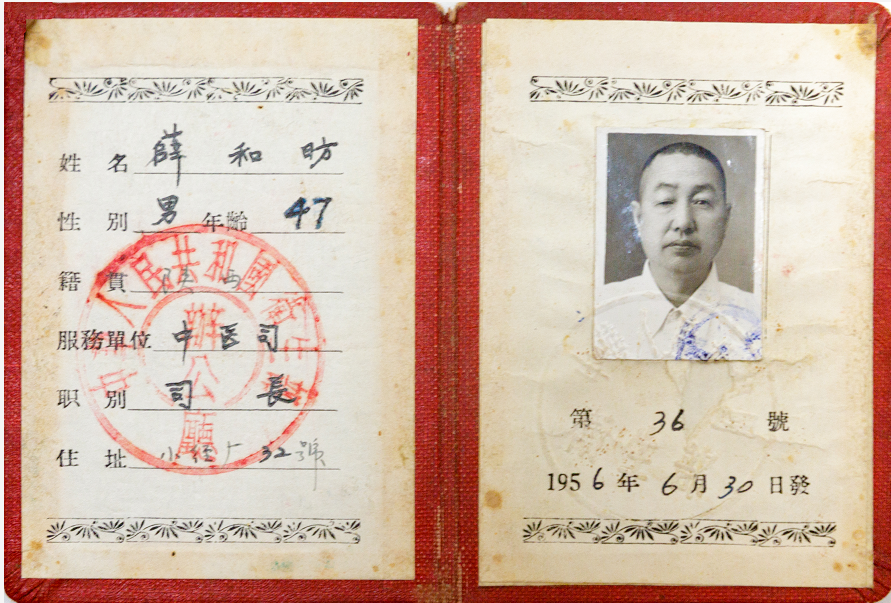 姓名 薛和昉
性别 男 年齡 47
籍貫 陕西
服務單位 中医司
职别 司長
住址 小经厂 32號
中華人民共和國衛生部
辦公廳
第 36 號
1956年6月30日發